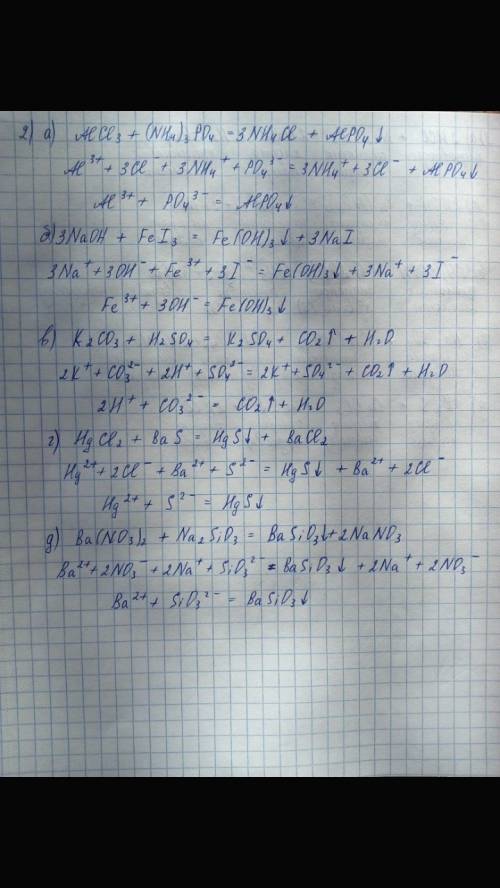 2) а) AlCl3 + (NH4)3PO4 = 3NH4Cl + AlPO4↓
Al³⁺ + 3Cl⁻ + 3NH4⁺ + PO4³⁻ = 3NH4⁺ + 3Cl⁻ + AlPO4↓
Al³⁺ + PO4³⁻ = AlPO4↓
б) 3NaOH + FeI3 = Fe(OH)3↓ + 3NaI
3Na⁺ + 3OH⁻ + Fe³⁺ + 3I⁻ = Fe(OH)3↓ + 3Na⁺ + 3I⁻
Fe³⁺ + 3OH⁻ = Fe(OH)3↓
в) K2CO3 + H2SO4 = K2SO4 + CO2↑ + H2O
2K⁺ + CO3²⁻ + 2H⁺ + SO4²⁻ = 2K⁺ + SO4²⁻ + CO2↑ + H2O
2H⁺ + CO3²⁻ = CO2↑ + H2O
г) HgCl2 + BaS = HgS↓ + BaCl2
Hg²⁺ + 2Cl⁻ + Ba²⁺ + S²⁻ = HgS↓ + Ba²⁺ + 2Cl⁻
Hg²⁺ + S²⁻ = HgS↓
д) Ba(NO3)2 + Na2SiO3 = BaSiO3↓ + 2NaNO3
Ba²⁺ + 2NO3⁻ + 2Na⁺ + SiO3²⁻ = BaSiO3↓ + 2Na⁺ + 2NO3⁻
Ba²⁺ + SiO3²⁻ = BaSiO3↓